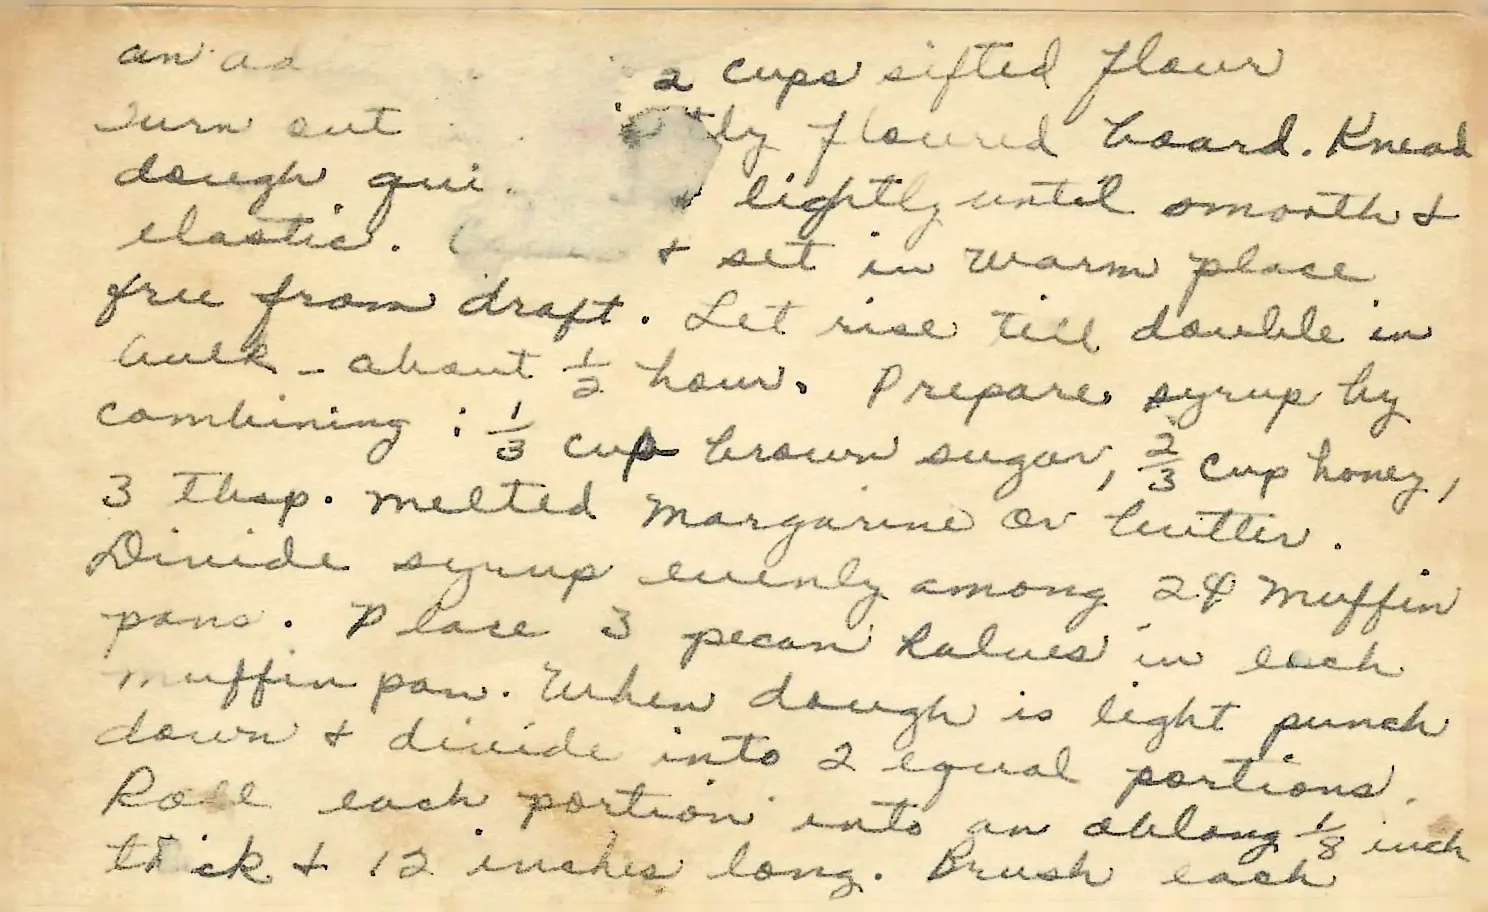 an ad 2 cups sifted flour
Turn out tly floured board. Knead
dough qui lightly until smooth &
elastic. & set in warm place
free from draft. Let rise till double in
bulk - about 1/2 hour. Prepare syrup by
combining : 1/3 cup brown sugar, 2/3 cup honey,
3 tbsp. melted margarine or butter.
Divide syrup evenly among 24 muffin
pans. Place 3 pecan halves in each
muffin pan. When dough is light punch
down & divide into 2 equal portions.
Roll each portion into an oblong 1/8 inch
thick & 12 inches long. Brush each